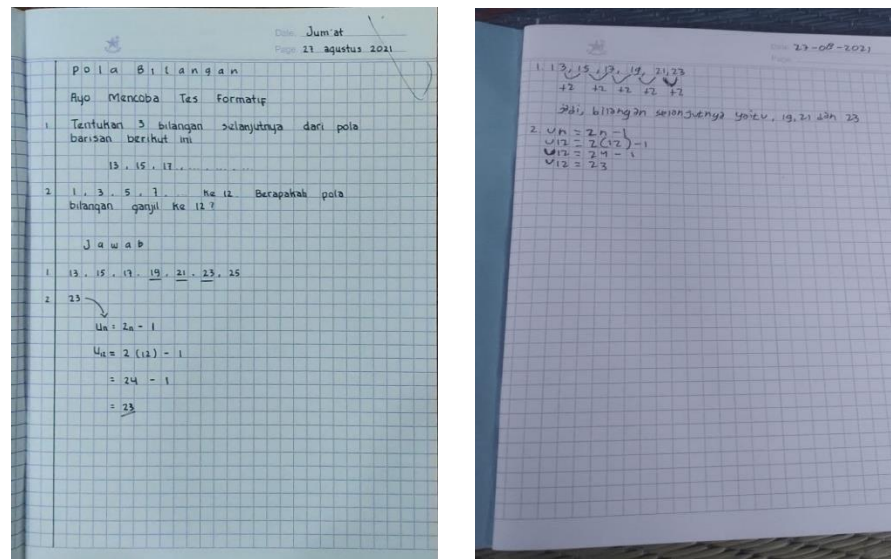 Date Jum'at
Page 27 agustus 2021
Pola Bilangan
Ayo Mencoba Tes Formatif
1 Tentukan 3 bilangan selanjutnya dari pola
barisan berikut ini
13 , 15 , 17 , .... , .... , ....
2 1 , 3 , 5 , 7 .... ke 12. Berapakah pola
bilangan ganjil ke 12 ?
Jawab
1 13 , 15 , 17 , 19 , 21 , 23 , 25
2 23
Un = 2n - 1
U12 = 2 (12) - 1
= 24 - 1
= 23
Date 27-08-2021
1. 13, 15, 17, 19, 21, 23
+2 +2 +2 +2 +2
Jadi, bilangan selanjutnya yaitu, 19, 21 dan 23
2. Un = 2n - 1
U12 = 2(12) - 1
U12 = 24 - 1
U12 = 23